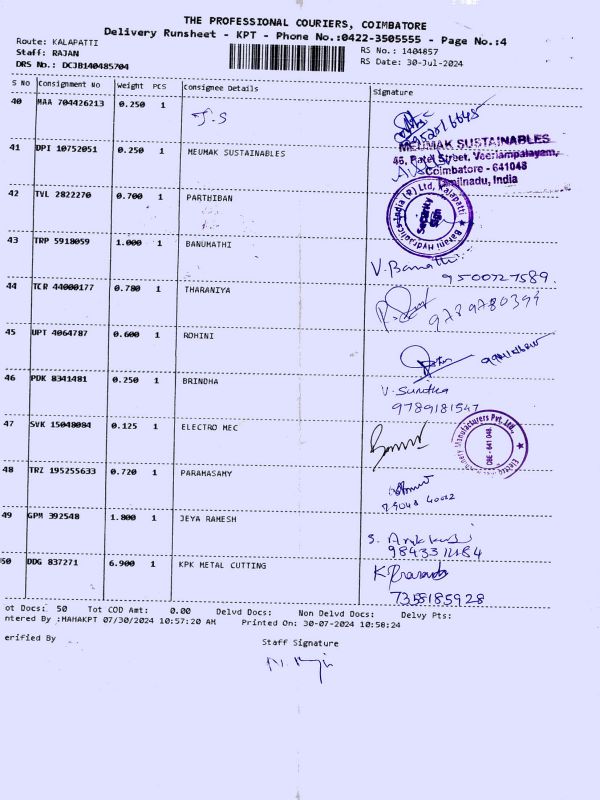 THE PROFESSIONAL COURIERS, COIMBATORE
Delivery Runsheet - KPT - Phone No.:0422-3505555 - Page No.:4
Route: KALAPATTI
Staff: RAJAN
DRS No.: DCJB140485704
RS No.: 1404857
RS Date: 30-Jul-2024
S No Consignment No Weight PCS Consignee Details Signature
40 MAA 704426213 0.250 1 J.S
41 DPI 10752051 0.250 1 MEUMAK SUSTAINABLES
MEUMAK SUSTAINABLES
46, Patel Street, Veeriampalayam,
Coimbatore - 641048
Tamilnadu, India
42 TVL 2822270 0.700 1 PARTHIBAN
Security
43 TRP 5918059 1.000 1 BANUMATHI
V. Banumathi
9500727589.
44 TCR 44000177 0.780 1 THARANIYA
9789780394
45 UPT 4064787 0.600 1 ROHINI
46 PDK 8341481 0.250 1 BRINDHA
V. Sunitha
9789181547
47 SVK 15048084 0.125 1 ELECTRO MEC
CBE - 641 048.
48 TRZ 195255633 0.720 1 PARAMASAMY
49 GPM 392548 1.800 1 JEYA RAMESH
50 DDG 837271 6.900 1 KPK METAL CUTTING
7358185928
ot Docs: 50 Tot COD Amt: 0.00 Delvd Docs: Non Delvd Docs: Delvy Pts:
ntered By :MAHAKPT 07/30/2024 10:57:20 AM Printed On: 30-07-2024 10:58:24
erified By
Staff Signature